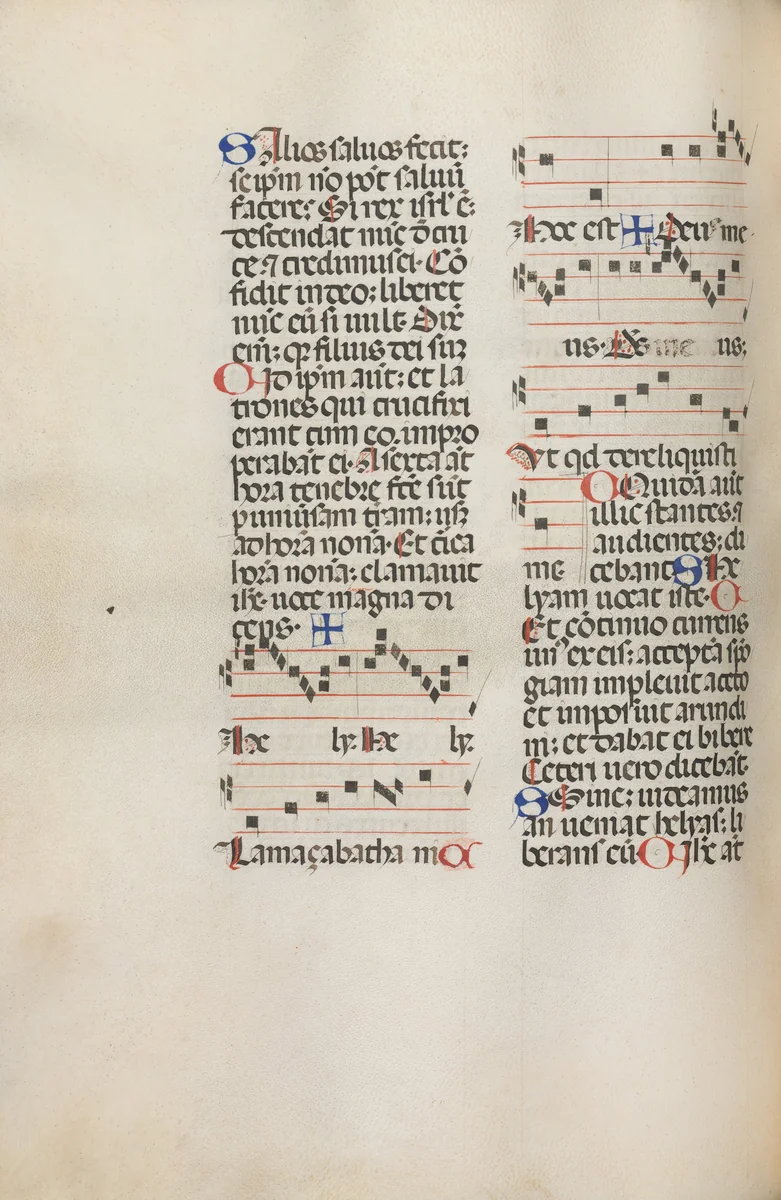 S Alios saluos fecit:
seip̄m nō pōt saluū
facere: Si rex isrl̄ ē:
descendat nūc d̄ cru
ce. ⁊ credimus ei. Cō
fidit in deo: liberet
nūc eū si uult. Dix̄
em̄: qꝛ filius dei suꝫ
C Id ip̄m aūt: et la
trones qui crucifixi
erant cum eo. impro
perabāt ei. A sexta aūt
hora tenebrę fcē sūt
p uniūsam t̄ram: usꝫ
ad horā nonā. Et circa
horā nonā: clamauit
ih̄c uoce magna di
cens. ✠
He ly. He ly.
Lamaçabatha ni C
Hoc est ✠ Deus me
us. Ds̄ me us:
Vt qd dereliquisti
me
C Quidā aūt
illic stantes. ⁊
audientes: di
cebant S He
lyam uocat iste. C
Et cōtinuo currens
un⁹ ex eis: acceptā spō
giam impleuit aceto
et imposiuit arundi
ni: et dabat ei bibere
Ceteri uero dicebāt.
S Sine: uideamus
an ueniat helyas: li
berans eū C Ih̄c aūt